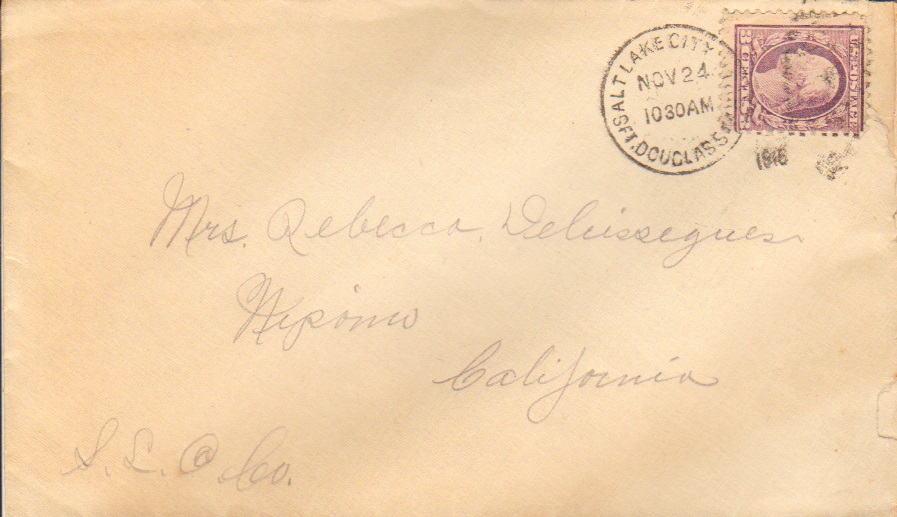 SALT LAKE CITY
NOV 24
10 30 AM
FT. DOUGLAS S
1918
U.S. POSTAGE
3 CENTS 3
Mrs. Rebecca Deleissegues
Nipomo
California
S. L. O Co.